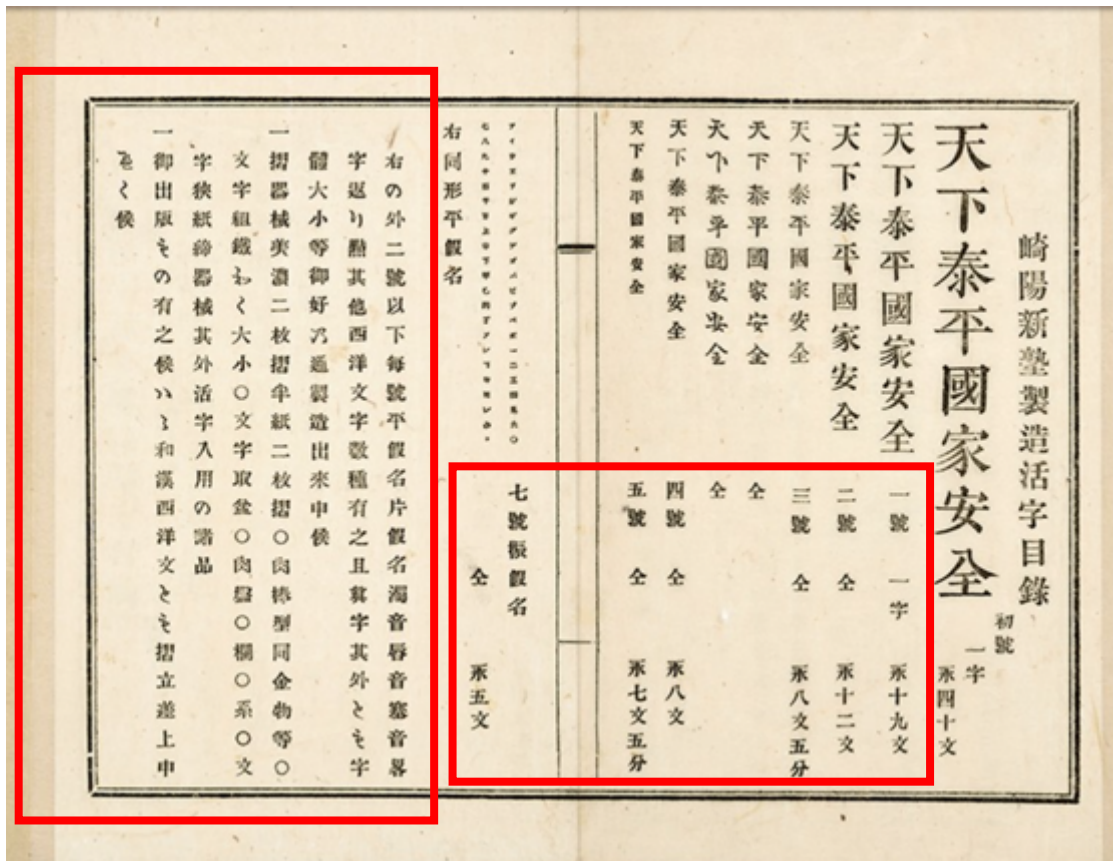 崎陽新塾製造活字目録
天下泰平國家安全 初號 一字 永四十文
天下泰平國家安全 一號 一字 永十九文
天下泰平國家安全 二號 仝 永十二文
天下泰平國家安全 三號 仝 永八文五分
天下泰平國家安全 仝
天下泰平國家安全 仝
天下泰平國家安全 四號 仝 永八文
天下泰平國家安全 五號 仝 永七文五分
七號振假名
仝 永五文
右同形平假名
右の外二號以下每號平假名片假名濁音唇音塞音畧
字返り點其他西洋文字數種有之且異字其外とも字
體大小等御好乃通製造出來申候
一摺器械美濃二枚摺半紙二枚摺〇肉棒型同金物等〇
文字組鐵わく大小〇文字取盆〇肉盤〇欄〇系〇文
字狹紙締器械其外活字入用の諸品
一御出版もの有之候ハヽ和漢西洋文とも摺立差上申
へく候